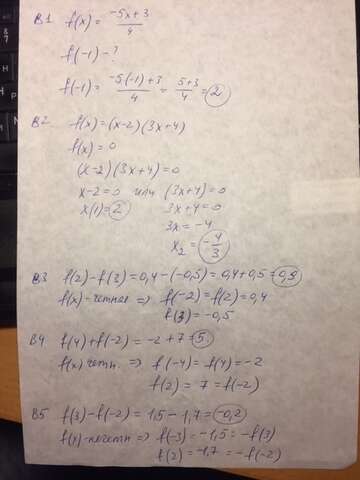 В1 f(x) = -5x+3/4
f(-1) - ?
f(-1) = -5(-1)+3/4 = 5+3/4 = 2
В2 f(x) = (x-2)(3x+4)
f(x) = 0
(x-2)(3x+4) = 0
x-2=0 или (3x+4)=0
x(1)=2 3x+4=0
3x = -4
x₂ = -4/3
В3 f(2)-f(3) = 0,4-(-0,5) = 0,4+0,5 = 0,9
f(x)-четная => f(-2) = f(2) = 0,4
f(3) = -0,5
В4 f(4)+f(-2) = -2+7 = 5
f(x) четн. => f(-4) = f(4) = -2
f(2) = 7 = f(-2)
В5 f(3)-f(-2) = 1,5-1,7 = -0,2
f(x)-нечетн => f(-3) = -1,5 = -f(3)
f(2) = -1,7 = -f(-2)